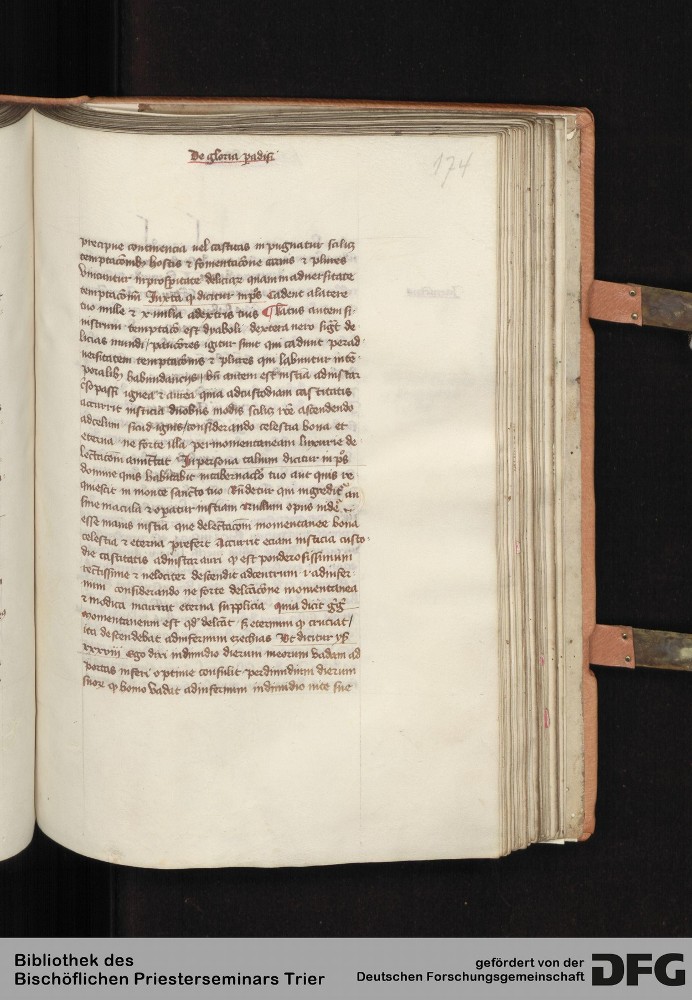 De gloria padisi
174
precipue continencia uel castitas inpugnatur scilicz
temptacōnibꝫ hostis ⁊ fomentacōne carnis ⁊ plures
vincuntur in prosperitate deliciaꝝ quam in aduersitate
temptacōnū Juxta ꝙ dicitur in ps Cadent a latere
tuo mille ⁊ x milia a dextris tuis Latus autem si-
nistrum temptatō est dyaboli dextera uero sigt de
licias mundi / pauciores igitur sunt qui cadunt per ad
uersitatem temptacōnis ⁊ plures qui labuntur
poralibꝫ habundancijs / autem est iusticia ad instar
ignea ⁊ aurea quia ad custodiam castitatis
accurrit iusticia duobus modis scilicz ascendendo
ad celum sicud ignis / considerando celestia bona et
eterna ne forte illa per momentaneam luxurie de
lectacōem amittat In persona talium dicitur in ps
domine quis habitabit in tabernaclō tuo aut quis re
quiescit in monte sancto tuo Rñdetur qui ingreditr
sine macula ⁊ operatur iusticiam nullum opus
esse maius iusticia que delectacōni momentanee bona
celestia ⁊ eterna prefert Accurrit eciam iusticia custo-
die castitatis ad instar auri ꝙ est ponderosissimum
rectissime ⁊ uelociter descendit ad centrum ad infer
num considerando ne forte delctācōne momentanea
⁊ modica incurrat eterna supplicia quia dicit gg
momentaneum est qd delcāt sꝫ eternum ꝙ cruciat /
ita descendebat ad infernum ezechias Vt dicitur ys
xxxviij Ego dixi in dimidio dierum meorum vadam ad
portas inferi optime consulit per dimidium dierum
suoꝝ ꝙ homo vadat ad infernum in dimidio vite sue
Bibliothek des
Bischöflichen Priesterseminars Trier
gefördert von der
Deutschen Forschungsgemeinschaft
DFG